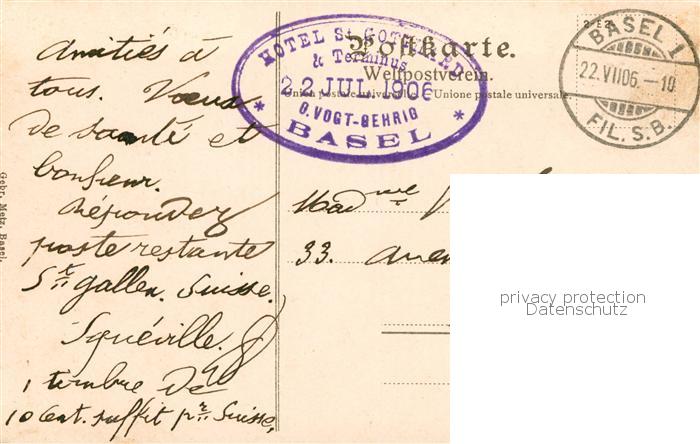 Amitiés à
tous. Vœux
de santé et
bonheur.
Répondez
poste restante
St gallen. Suisse.
Squéville.
1 timbre de
10 Cent. suffit pr Suisse.
Gebr. Metz, Basel.
HOTEL St GOTTHARD
& Terminus
22 JUL. 1906
O. VOGT-GEHRIG
BASEL
Postkarte.
Weltpostverein.
Union postale universelle. Unione postale universale.
BASEL 1
22.VII06.-10
FIL. S.B.
Madme V
33. Aven
privacy protection
Datenschutz